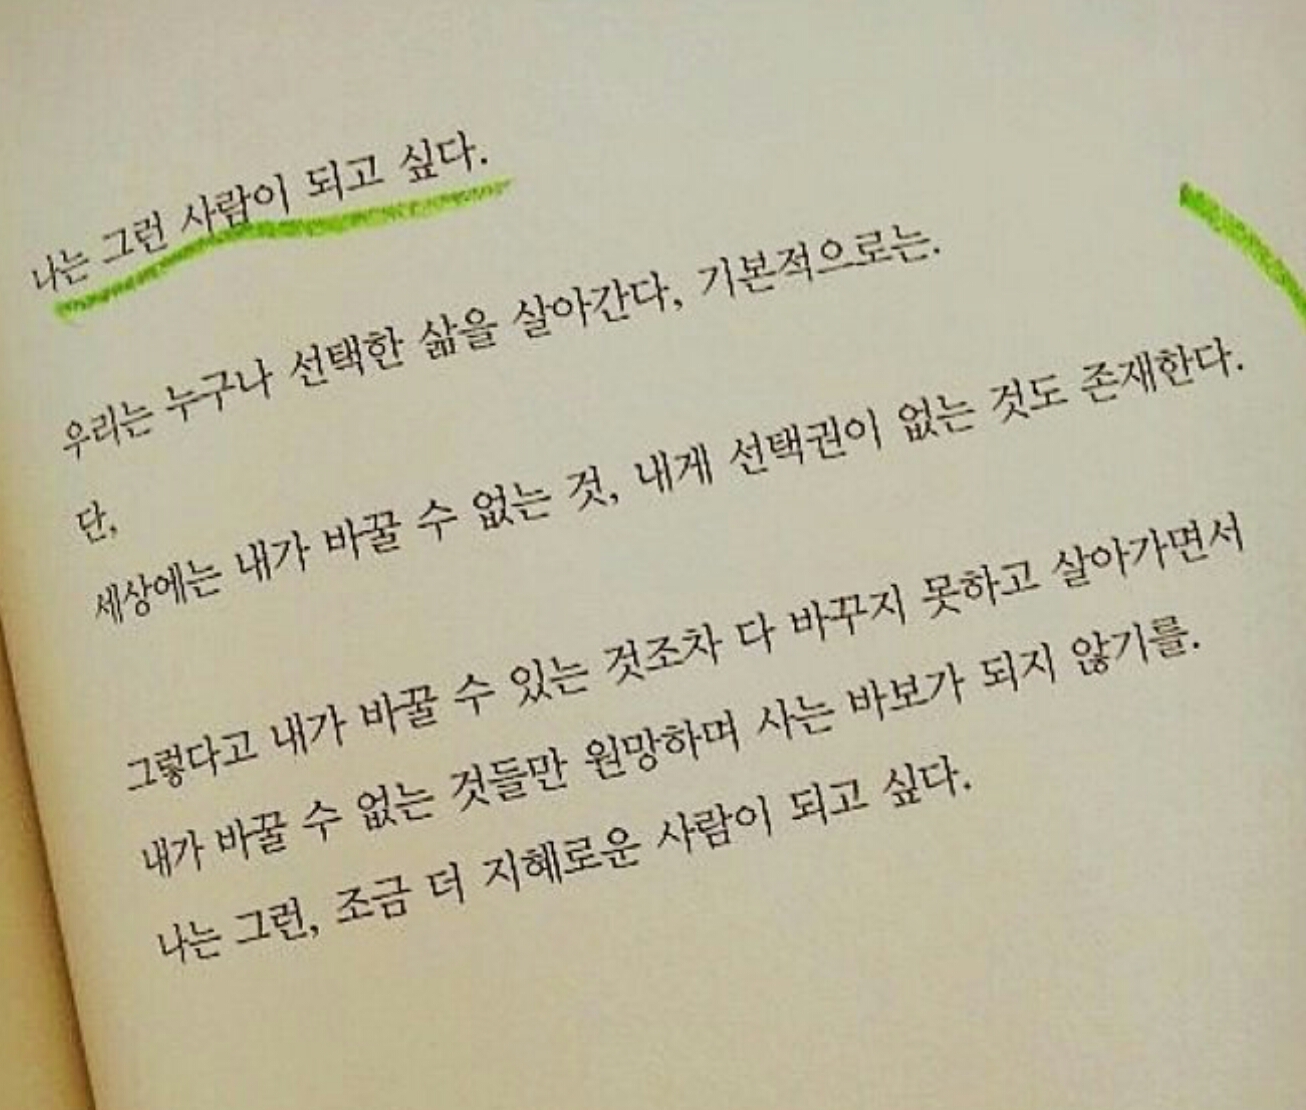 나는 그런 사람이 되고 싶다.
우리는 누구나 선택한 삶을 살아간다, 기본적으로는.
단,
세상에는 내가 바꿀 수 없는 것, 내게 선택권이 없는 것도 존재한다.
그렇다고 내가 바꿀 수 있는 것조차 다 바꾸지 못하고 살아가면서
내가 바꿀 수 없는 것들만 원망하며 사는 바보가 되지 않기를.
나는 그런, 조금 더 지혜로운 사람이 되고 싶다.